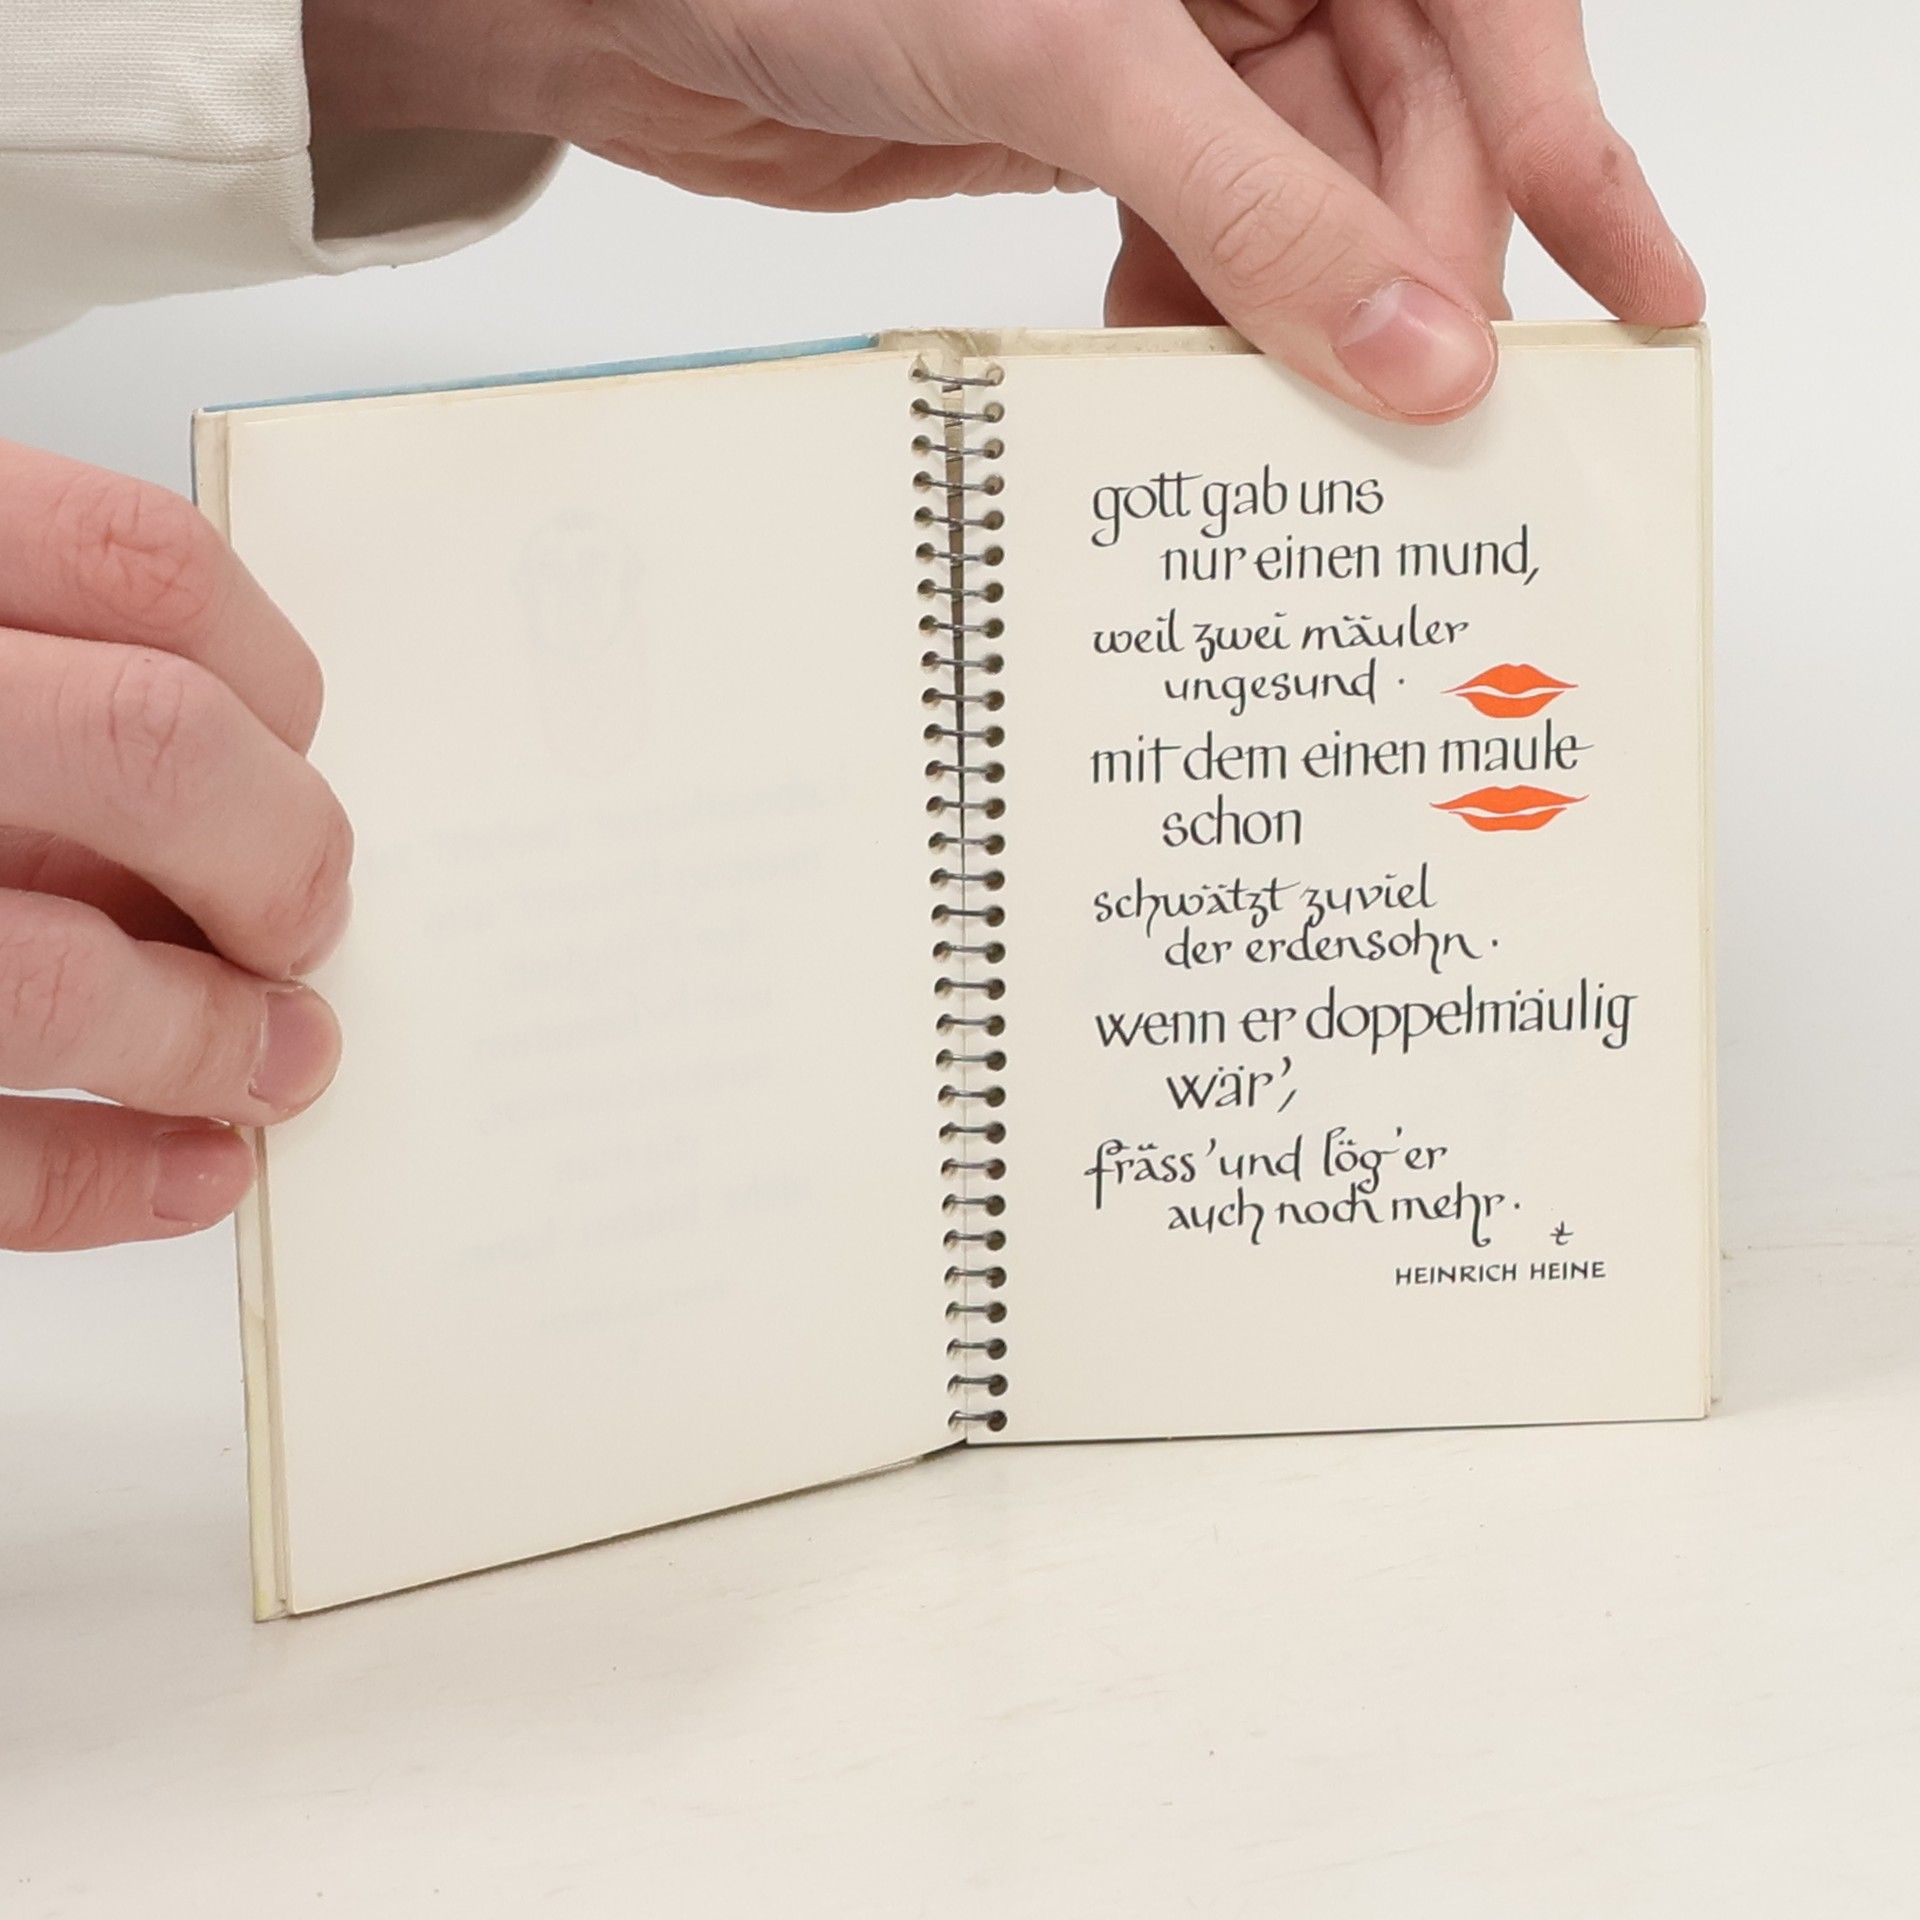 gott gab uns
nur einen mund,
weil zwei mäuler
ungesund ·
mit dem einen maule
schon
schwätzt zuviel
der erdensohn ·
wenn er doppelmäulig
wär',
fräss' und lög' er
auch noch mehr ·
HEINRICH HEINE